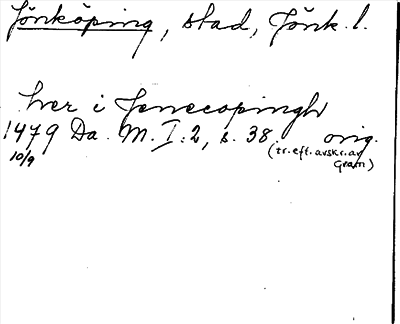 Jönköping, stad, Jönk. l.
hver i Jenecopingh
1479 Da. M. I:2, s. 38. orig.
10/9 (tr. eft. avskr. av
Gram)